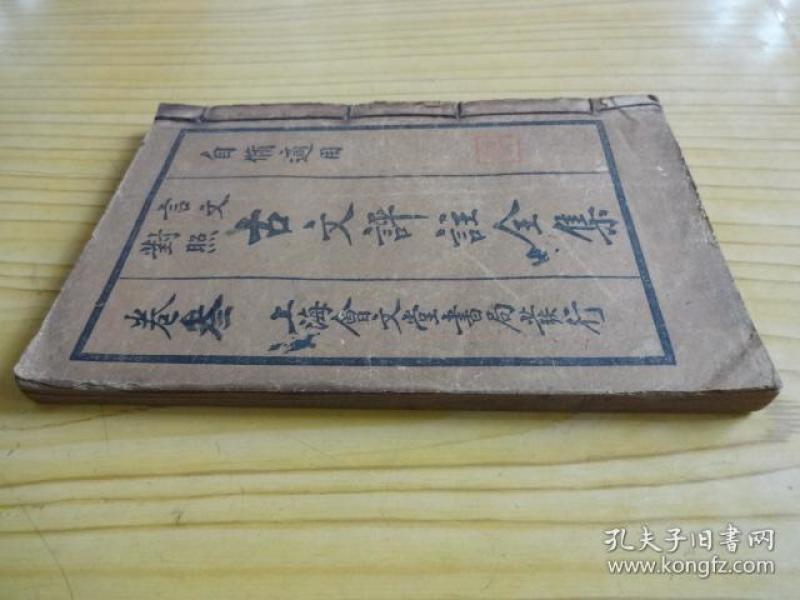 自脩適用
言文
對照
古文評註全集
卷叁
上海會文堂書局發行
孔夫子旧书网
www.kongfz.com